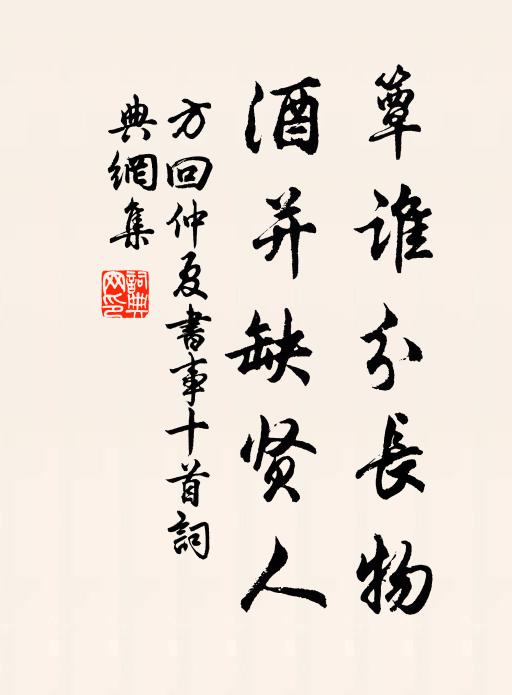 簟谁分長物
酒并缺贤人
方回仲夏書事十首詞
典網集
詞典网印